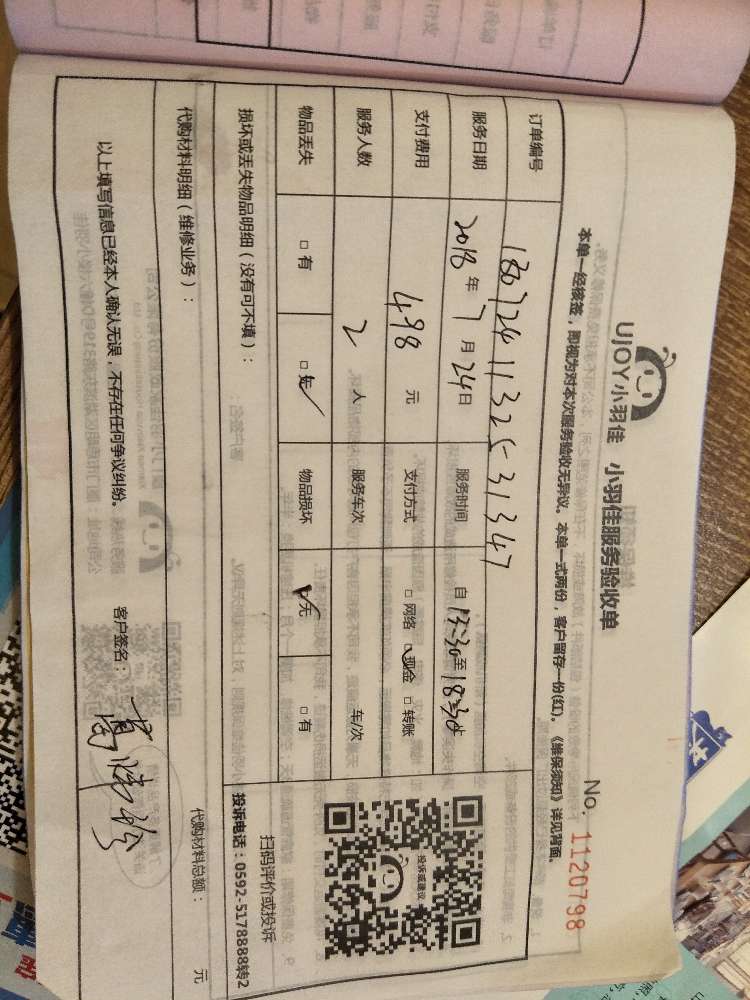 UJOY小羽佳 小羽佳服务验收单
No: 1120798
本单一经核签，即视为对本次服务验收无异议。本单一式两份，客户留存一份(红)。《维保须知》详见背面。
订单编号 1807241132531347
服务日期 2018年7月24日 服务时间 自13:30至18:30
支付费用 498元 支付方式 □网络 □现金 □转账
服务人数 2人 服务车次 车/次
物品丢失 □有 □无 物品损坏 □无 □有
损坏或丢失物品明细（没有可不填）：
投诉或建议
扫码评价或投诉
投诉电话：0592-5178888转2
代购材料明细（维修业务）： 代购材料总额： 元
以上填写信息已经本人确认无误，不存在任何争议纠纷。 客户签名：